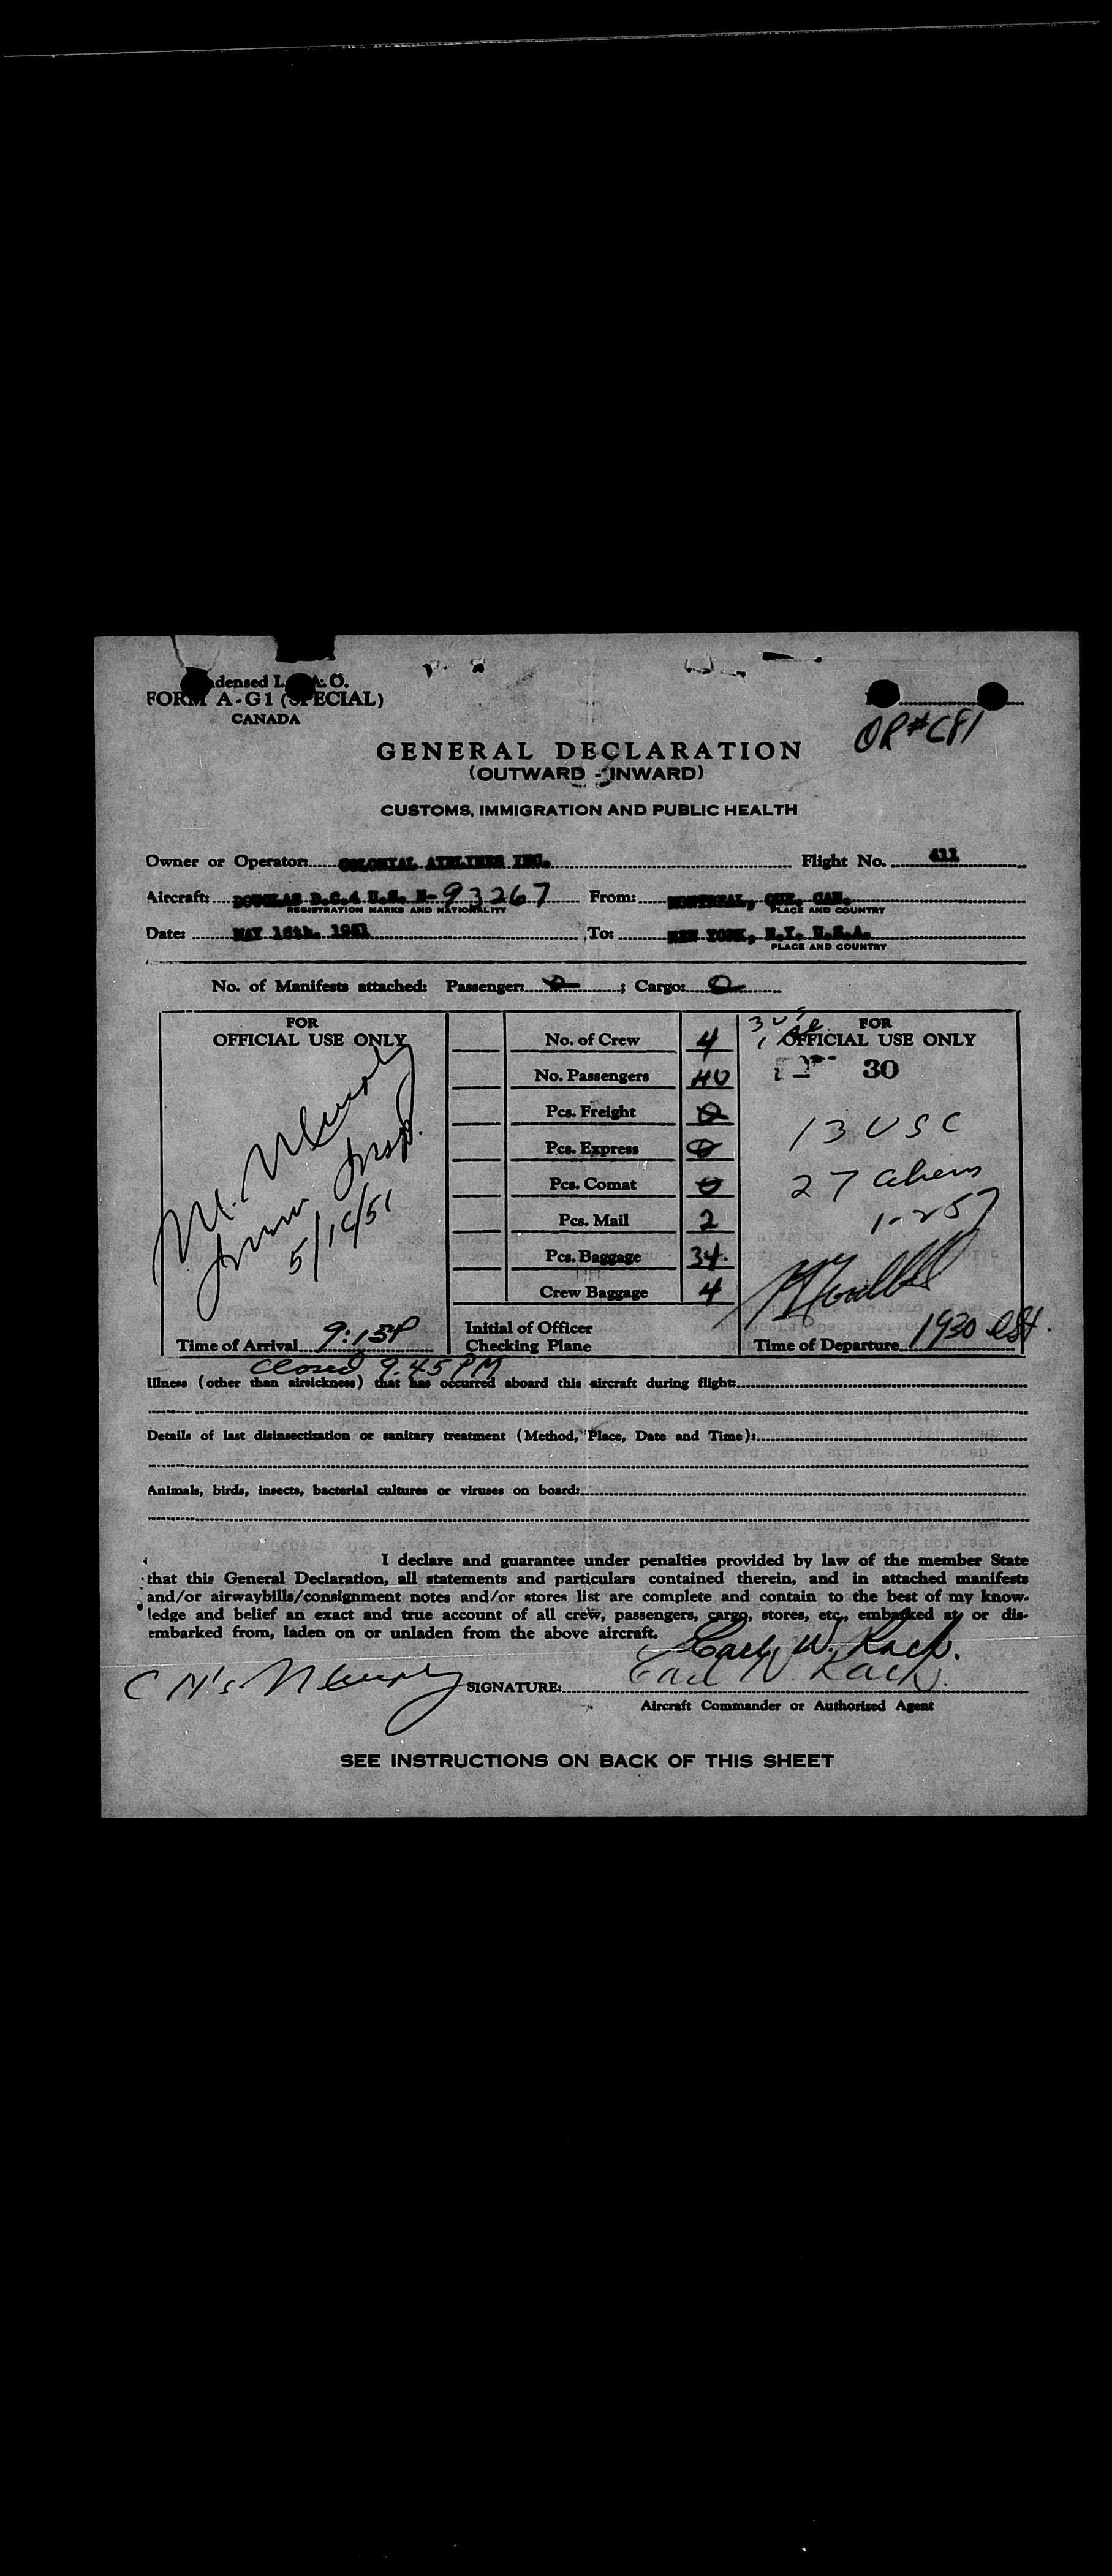 densed I. A. O.
FORM A-G1 (SPECIAL)
CANADA
OR#C81
GENERAL DECLARATION
(OUTWARD - INWARD)
CUSTOMS, IMMIGRATION AND PUBLIC HEALTH
Owner or Operator: COLONIAL AIRLINES INC. Flight No. 411
Aircraft: DOUGLAS D.C.4 U.S. N- 93267 From: MONTREAL, QUE. CAN.
REGISTRATION MARKS AND NATIONALITY PLACE AND COUNTRY
Date: MAY 16th. 1951 To: NEW YORK, N.Y. U.S.A.
PLACE AND COUNTRY
No. of Manifests attached: Passenger: 0 ; Cargo: 0
FOR
OFFICIAL USE ONLY
M. Murphy
Imm Insp.
5/16/51
Time of Arrival 9:15P
Closed 9.45 PM
No. of Crew 4
No. Passengers 40
Pcs. Freight 0
Pcs. Express 0
Pcs. Comat 0
Pcs. Mail 2
Pcs. Baggage 34.
Crew Baggage 4
Initial of Officer
Checking Plane
3 US
FOR
OFFICIAL USE ONLY
30
13 USC
27 aliens
1-257
Time of Departure 1930 est.
Illness (other than airsickness) that has occurred aboard this aircraft during flight:
Details of last disinsectization or sanitary treatment (Method, Place, Date and Time):
Animals, birds, insects, bacterial cultures or viruses on board:
I declare and guarantee under penalties provided by law of the member State
that this General Declaration, all statements and particulars contained therein, and in attached manifests
and/or airwaybills/consignment notes and/or stores list are complete and contain to the best of my know-
ledge and belief an exact and true account of all crew, passengers, cargo, stores, etc., embarked at, or dis-
embarked from, laden on or unladen from the above aircraft.
Earl W. Rach.
Earl W Rach
C M's Murphy
SIGNATURE:
Aircraft Commander or Authorised Agent
SEE INSTRUCTIONS ON BACK OF THIS SHEET